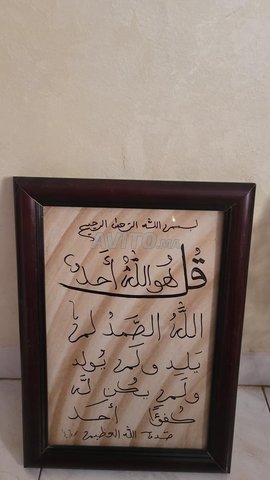 بسم الله الرحمن الرحيم
AVITO.ma
قُل هُوَ اللهُ أَحَدٌ
اللَّهُ الصَّمَدُ لم
يَلِد ولَم يُولد
ولَم يكُن لَّهُ
كُفُؤًا أَحَد
صدق الله العظيم